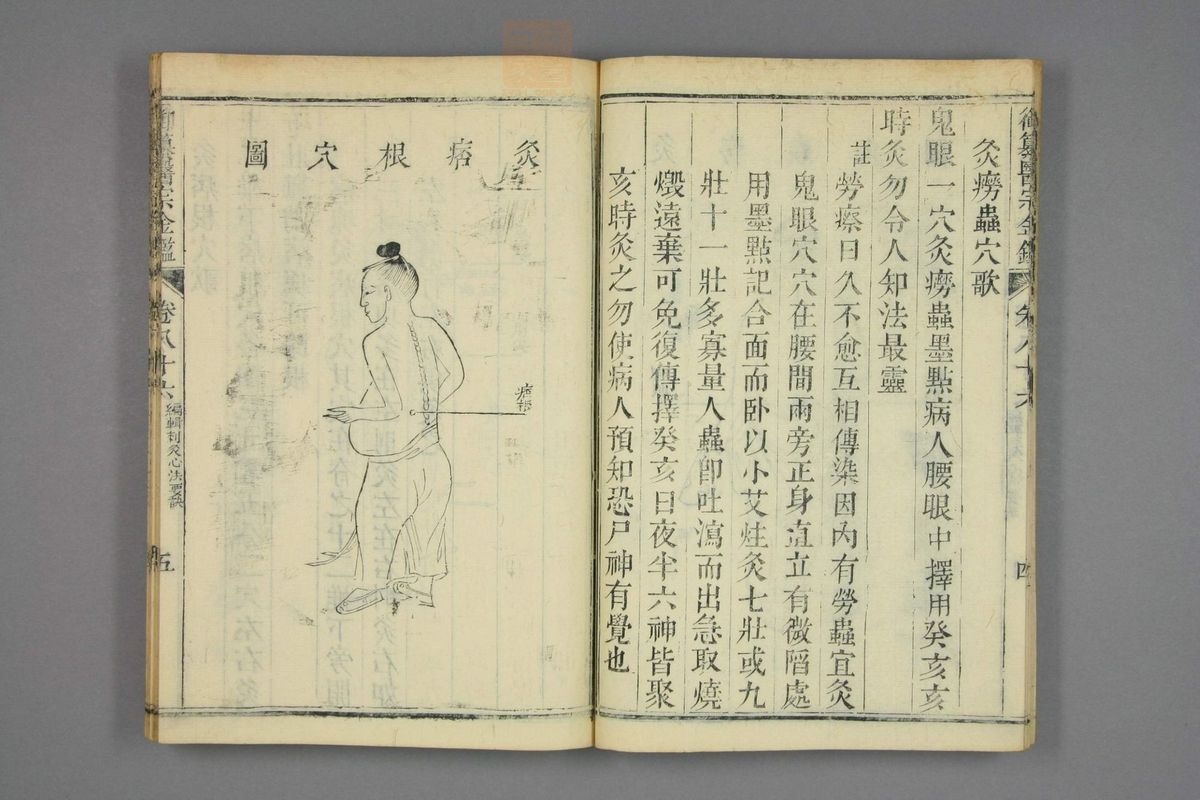 灸癆蟲穴歌
鬼眼一穴灸癆蟲墨點病人腰眼中擇用癸亥亥
時灸勿令人知法最靈
註
勞瘵日久不愈互相傳染因內有勞蟲宜灸
鬼眼穴穴在腰間兩旁正身直立有微陷處
用墨點記合面而卧以小艾炷灸七壯或九
壯十一壯多寡量人蟲卽吐瀉而出急取燒
燬遠棄可免復傳擇癸亥日夜半六神皆聚
亥時灸之勿使病人預知恐尸神有覺也
四
灸痞根穴圖
痞根
御纂醫宗金鑑
卷八十六
編輯刺灸心法要訣
五